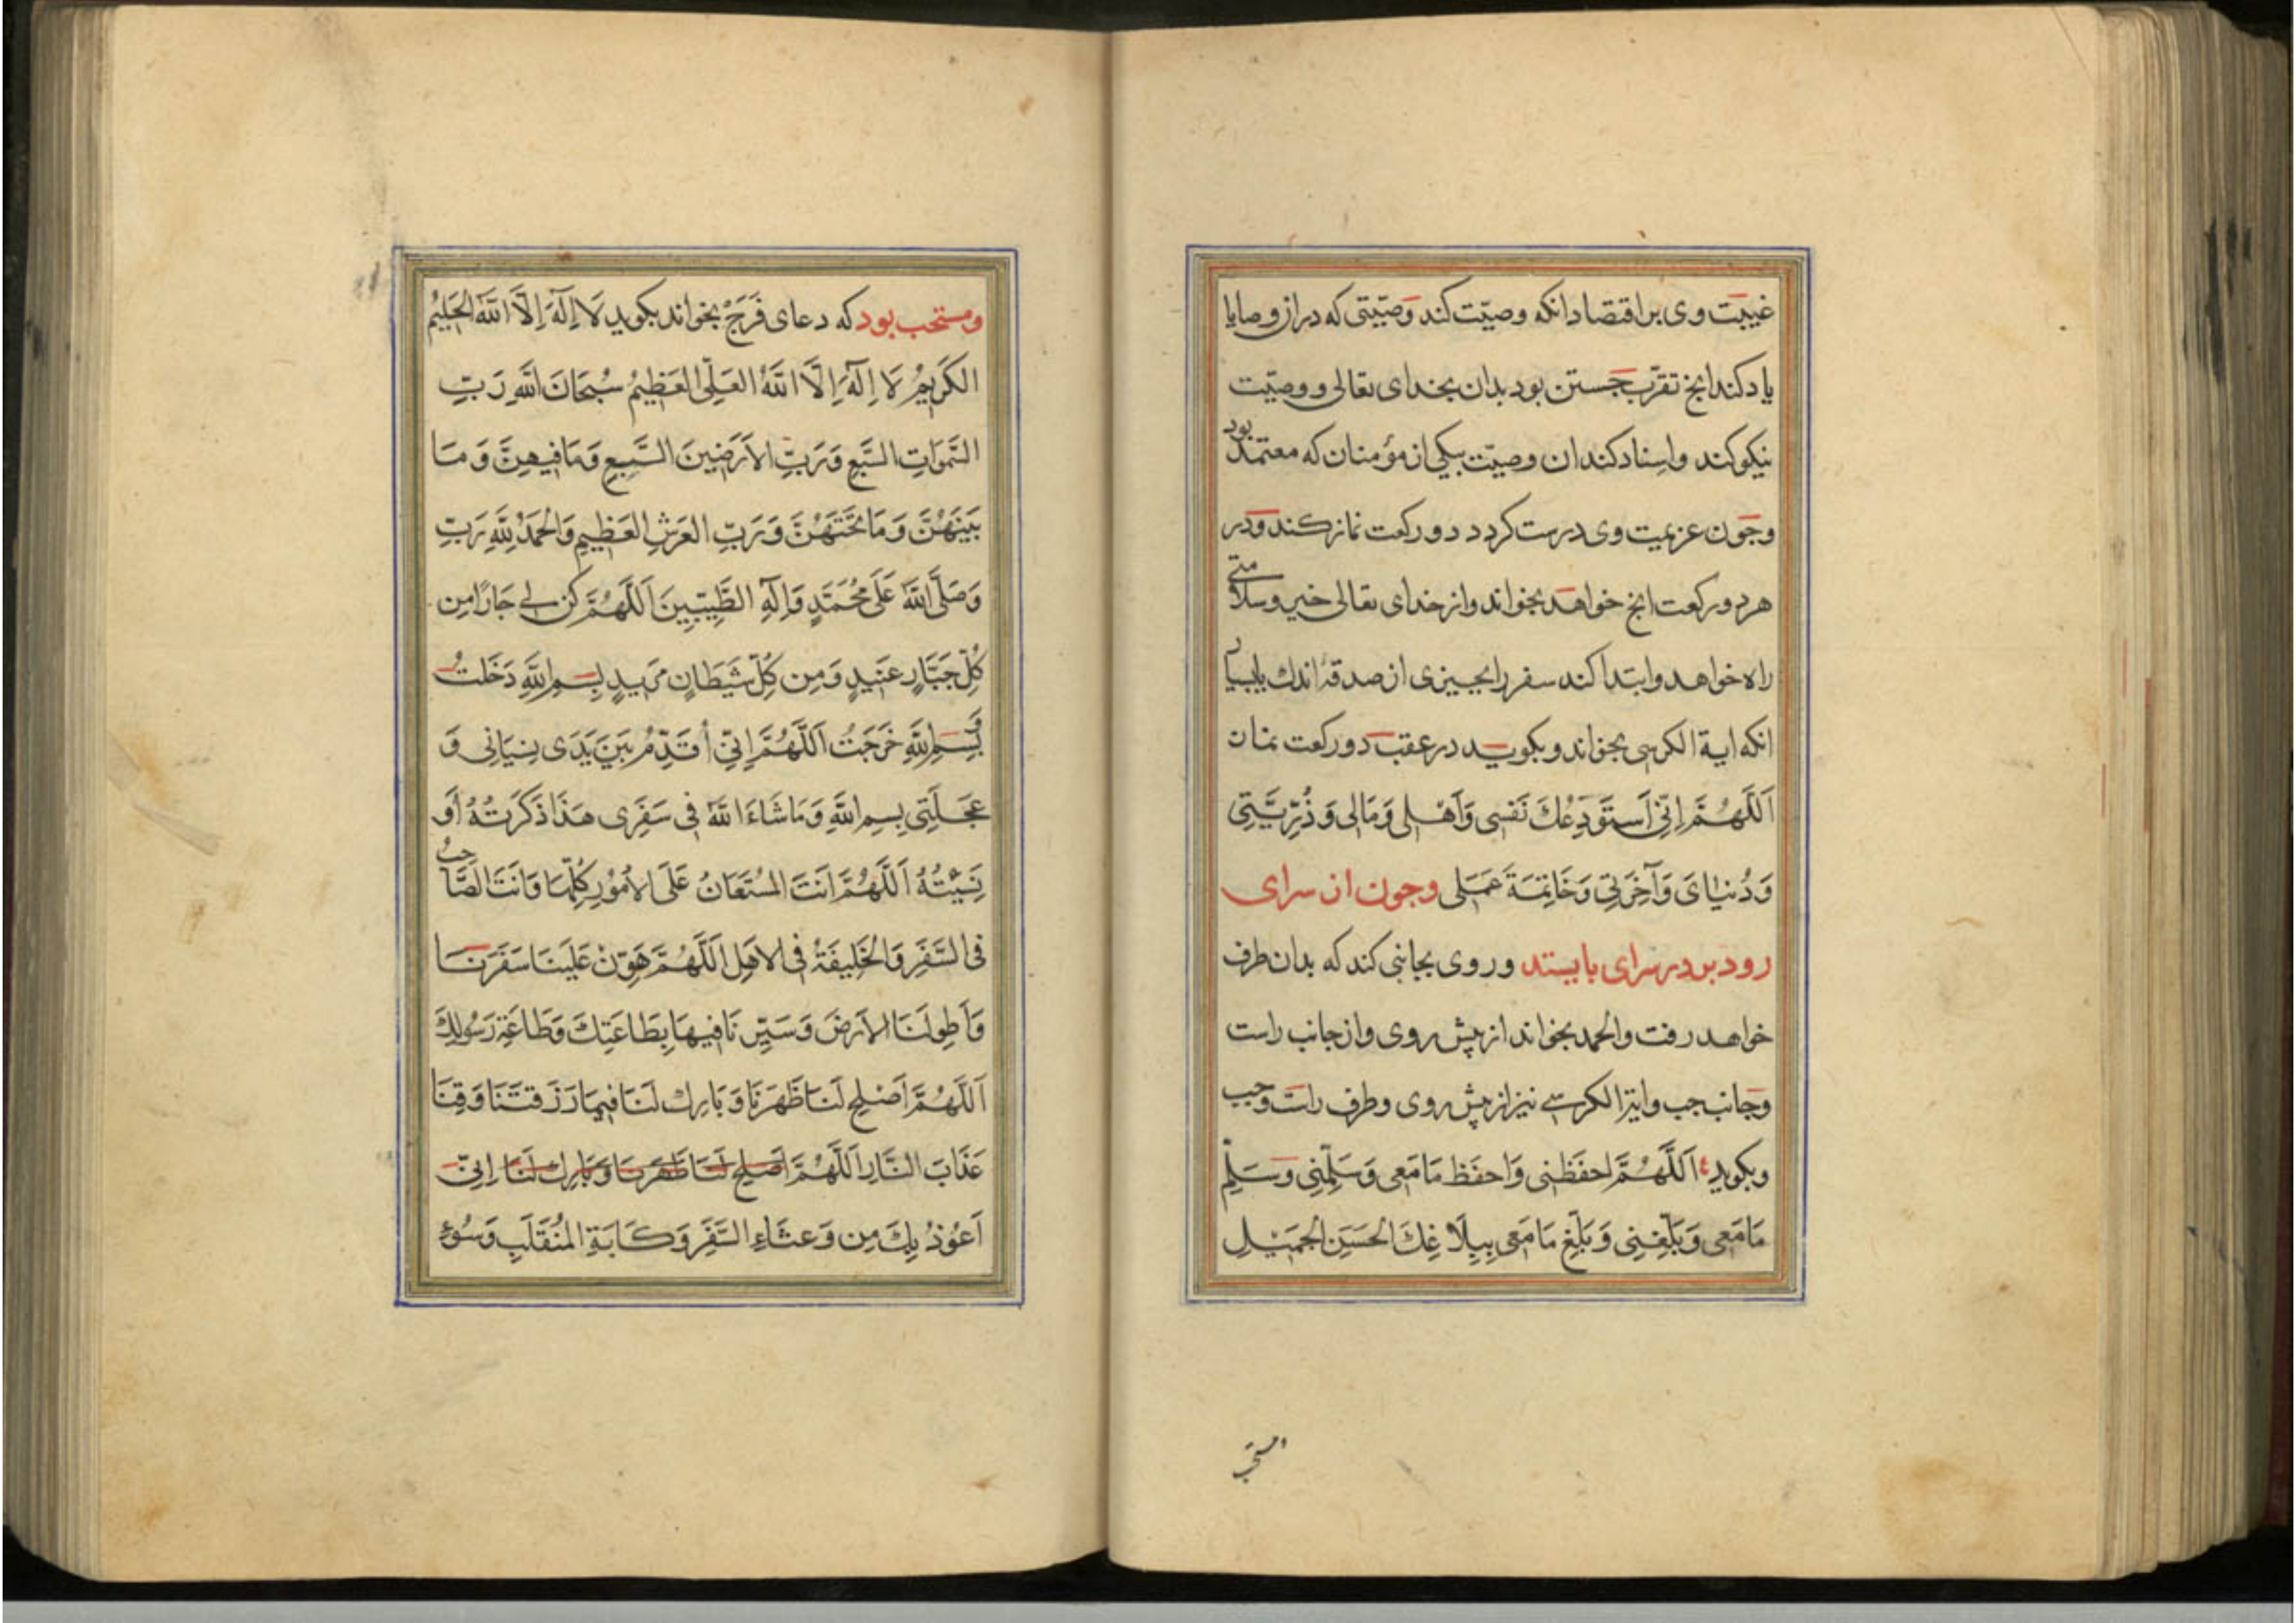 غیبت وی بر اقتصاد انکه وصیّت کند وَصیّتی که در ان وصایا
یاد کند انج تقرّب جَستن بود بدان بخدای تعالی و وصیّت
نیکو کند واِسناد کند ان وصیّت بیکی از مؤمنان که معتمد بود
وجَون عزیمت وی درست کردد دو رکعت نماز کند وَدر
هر دو رکعت انج خواهَد بخواند واز خدای تعالی خیر وسلامتی
راه خواهد وابتدا کند سفر را بچیزی از صدقهٔ اندك یا بسیار
انکه ایة الکرسی بخواند و بکویَد در عقبَ دو رکعت نماز
اَللَّهُمَّ اِنّی اَستَودِعُكَ نَفسی وَاَهْلی وَمَالی وَذُرِّیَّتِی
وَدُنیَایَ وَآخِرَتِی وَخَاتِمَةَ عَمَلی وجون از سرای
رود بر در سرای بایستد وروی بجانبی کند که بدان طرف
خواهد رفت والحمد بخواند از پیش روی واز جانب راست
وَجانب جب وایة الکرسے نیز از پیش روی وطرف راست وجب
وبکوید اَللَّهُمَّ احفَظنِی وَاحفَظ مَامَعِی وَسَلِّمْنِی وَسَلِّم
مَامَعِی وَبَلِّغنِی وَبَلِّغ مَامَعِی بِبَلَاغِكَ الحَسَنِ الجَمِیْلِ
مستحب
ومستحب بود که دعای فَرَجْ بخواند بکوید لَا اِلَهَ اِلَّا اللَّهُ الحَلِیْمُ
الکَرِیمُ لَا اِلَهَ اِلَّا اللَّهُ العَلِیُّ العَظِیمُ سُبحَانَ اللَّهِ رَبِّ
السَّمَوَاتِ السَّبعِ وَرَبِّ الاَرَضِینَ السَّبعِ وَمَافِیهِنَّ وَمَا
بَینَهُنَّ وَمَاتَحتَهُنَّ وَرَبِّ العَرشِ العَظِیمِ وَالحَمدُ لِلَّهِ رَبِّ
وَصَلَّی اللَّهُ عَلَی مُحَمَّدٍ وَاِلهِ الطَّیِّبِینَ اَللَّهُمَّ کُن لِے جَارًا مِن
کُلِّ جَبَّارٍ عَنِیدٍ وَمِن کُلِّ شَیطَانٍ مَرِیدٍ بِسمِ اللَّهِ دَخَلتُ
وَبِسمِ اللَّهِ خَرَجتُ اَللَّهُمَّ اِنّی اُقَدِّمُ بَینَ یَدَی نِسیَانِی وَ
عَجَلَتِی بِسمِ اللَّهِ وَمَاشَاءَ اللَّهُ فِی سَفَرِی هَذَا ذَکَرتُهُ اَو
نَسِیْتُهُ اَللَّهُمَّ اَنتَ المُستَعَانُ عَلَی الاُمُورِ کُلِّهَا وَاَنتَ الصَّاحِبُ
فِی السَّفَرِ وَالخَلِیفَةُ فِی الاَهلِ اَللَّهُمَّ هَوِّنْ عَلَینَا سَفَرَنَا
وَاَطوِلَنَا الاَرضَ وَسَیِّرنَافِیهَا بِطَاعَتِكَ وَطَاعَةِ رَسُولِكَ
اَللَّهُمَّ اَصْلِح لَنَا ظَهْرَنَا وَبَارِك لَنَا فِیمَا رَزَقتَنَا وَقِنَا
عَذَابَ النَّارِ اَللَّهُمَّ اَصلِح لَنَا ظَهرَنَا وَبَارِك لَنَا اِنِّی
اَعُوذُ بِكَ مِن وَعثَاءِ السَّفَرِ وَکَابَةِ المُنقَلَبِ وَسُوءِ